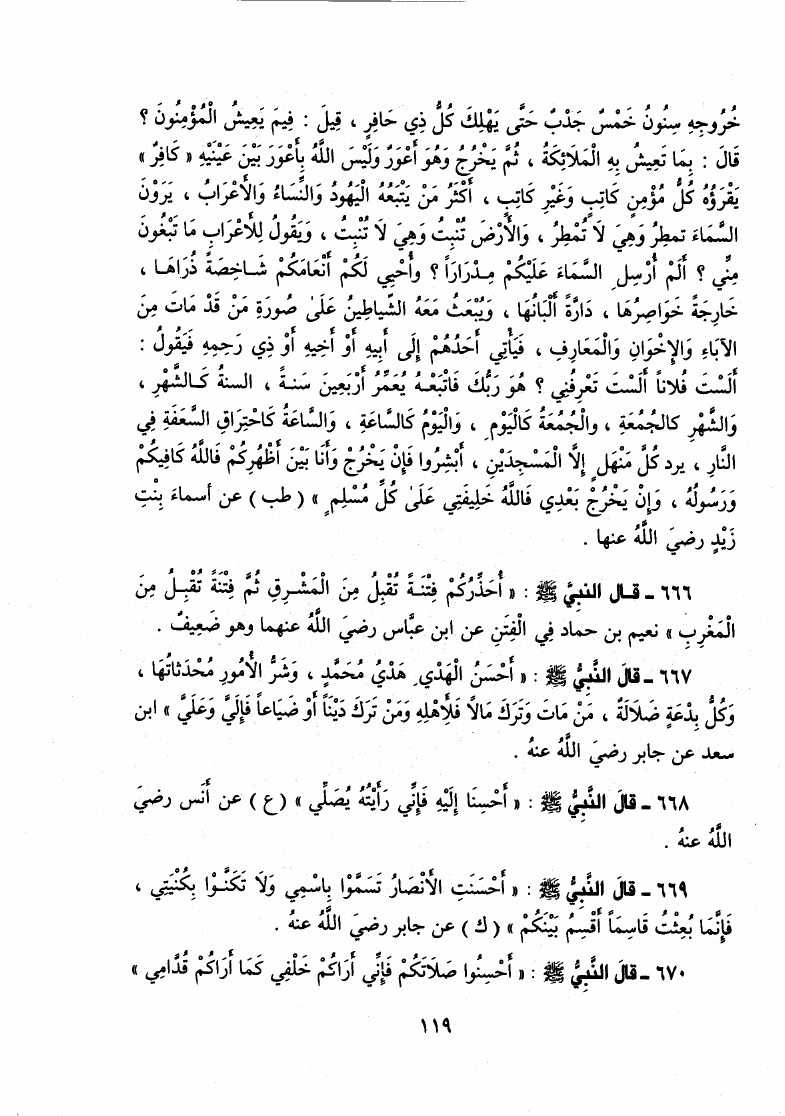 خُرُوجِهِ سِنُونُ خَمْسٌ جَدْبٌ حَتَّى يَهْلِكَ كُلُّ ذِي حَافِرٍ ، قِيلَ : فِيمَ يَعِيشُ الْمُؤْمِنُونَ ؟
قَالَ : بِمَا تَعِيشُ بِهِ الْمَلَائِكَةُ ، ثُمَّ يَخْرُجُ وَهُوَ أَعْوَرُ وَلَيْسَ اللَّهُ بِأَعْوَرَ بَيْنَ عَيْنَيْهِ « كَافِرٌ »
يَقْرَؤُهُ كُلُّ مُؤْمِنٍ كَاتِبٍ وَغَيْرِ كَاتِبٍ ، أَكْثَرُ مَنْ يَتْبَعُهُ الْيَهُودُ وَالنِّسَاءُ وَالأَعْرَابُ ، يَرَوْنَ
السَّمَاءَ تمطِرُ وَهِيَ لَا تُمْطِرُ ، وَالأَرْضَ تُنْبِتُ وَهِيَ لَا تُنْبِتُ ، وَيَقُولُ لِلأَعْرَابِ مَا تَبْغُونَ
مِنِّي ؟ أَلَمْ أُرْسِلِ السَّمَاءَ عَلَيْكُمْ مِدْرَارَاً ؟ وَأُحْيِي لَكُمْ أَنْعَامَكُمْ شَاخِصَةً ذُرَاهَا ،
خَارِجَةً خَوَاصِرُهَا ، دَارَّةً أَلْبَانُهَا ، وَيُبْعَثُ مَعَهُ الشَّيَاطِينُ عَلَىٰ صُورَةِ مَنْ قَدْ مَاتَ مِنَ
الآبَاءِ وَالإِخْوَانِ وَالْمَعَارِفِ ، فَيَأْتِي أَحَدُهُمْ إِلَى أَبِيهِ أَوْ أَخِيهِ أَوْ ذِي رَحِمِهِ فَيَقُولُ :
أَلَسْتَ فُلَاناً أَلَسْتَ تَعْرِفُنِي ؟ هُوَ رَبُّكَ فَاتْبَعْهُ يُعَمَّرُ أَرْبَعِينَ سَنَةً ، السنةُ كَالشَّهْرِ ،
وَالشَّهْرِ كالجُمُعَةِ ، والْجُمُعَةُ كَالْيَوْمِ ، وَالْيَوْمُ كَالسَّاعَةِ ، وَالسَّاعَةُ كَاحْتِرَاقِ السَّعَفَةِ فِي
النَّارِ ، يرد كُلَّ مَنْهَلٍ إِلَّا الْمَسْجِدَيْنِ ، أَبْشِرُوا فَإِنْ يَخْرُجْ وَأَنَا بَيْنَ أَظْهُرِكُمْ فَاللَّهُ كَافِيكُمْ
وَرَسُولُهُ ، وَإِنْ يَخْرُجْ بَعْدِي فَاللَّهُ خَلِيفَتِي عَلَىٰ كُلِّ مُسْلِمٍ » ( طب ) عن أسماءَ بِنْتِ
زَيْدٍ رضيَ اللَّهُ عنها .
٦٦٦ ـ قـال النبيُّ ﷺ : « أُحَذِّرُكُمْ فِتْنَةً تُقْبِلُ مِنَ الْمَشْرِقِ ثُمَّ فِتْنَةً تُقْبِلُ مِنَ
الْمَغْرِبِ » نعيم بن حماد فِي الْفِتَنِ عن ابن عبَّاس رضيَ اللَّهُ عنهما وهو ضَعِيفٌ .
٦٦٧ ـ قالَ النَّبِيُّ ﷺ : « أَحْسَنُ الْهَدْيِ هَدْيُ مُحَمَّدٍ ، وَشَرُّ الأُمُورِ مُحْدَثَاتُهَا ،
وَكُلُّ بِدْعَةٍ ضَلَالَةٌ ، مَنْ مَاتَ وَتَرَكَ مَالاً فَلأَهْلِهِ وَمَنْ تَرَكَ دَيْنَاً أَوْ ضَيَاعاً فَإِلَيَّ وَعَلَيَّ » ابن
سعد عن جابر رضيَ اللَّهُ عنهُ .
٦٦٨ ـ قالَ النَّبِيُّ ﷺ : « أَحْسِنَا إِلَيْهِ فَإِنِّي رَأَيْتُهُ يُصَلِّي » ( ع ) عن أَنس رضيَ
اللَّهُ عنهُ .
٦٦٩ ـ قالَ النَّبِيُّ ﷺ : « أَحْسَنَتِ الأَنْصَارُ تَسَمَّوْا بِاسْمِي وَلَا تَكَنَّوْا بِكُنْيَتِي ،
فَإِنَّمَا بُعِثْتُ قَاسِمَاً أَقْسِمُ بَيْنَكُمْ » ( ك ) عن جابر رضيَ اللَّهُ عنهُ .
٦٧٠ ـ قالَ النَّبِيُّ ﷺ : « أَحْسِنُوا صَلَاتَكُمْ فَإِنِّي أَرَاكُمْ خَلْفِي كَمَا أَرَاكُمْ قُدَّامِي »
١١٩